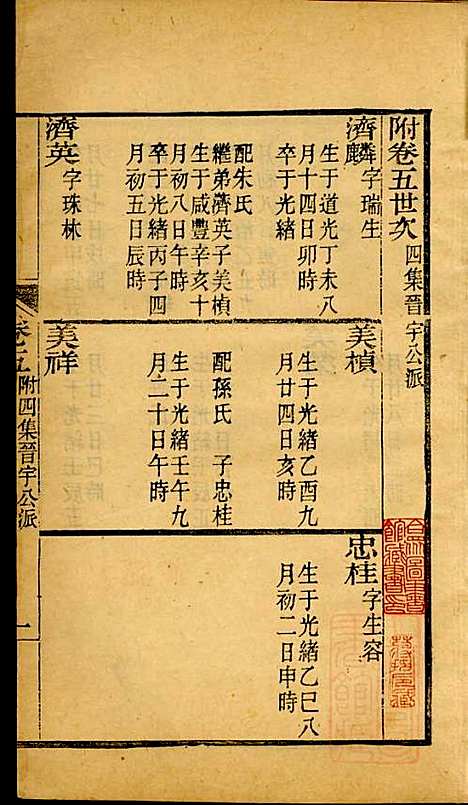 附卷五世次 四集晉宇公派
濟麟 字瑞生
生于道光丁未八
月十四日卯時
卒于光緒
配朱氏
繼弟濟英子美楨
生于咸豐辛亥十
月初八日午時
卒于光緒丙子四
月初五日辰時
濟英 字珠林
美楨
生于光緒乙酉九
月廿四日亥時
配孫氏 子忠桂
生于光緒壬午九
月二十日午時
美祥
忠桂 字生容
生于光緒乙巳八
月初二日申時
卷之五 附四集晉宇公派 一